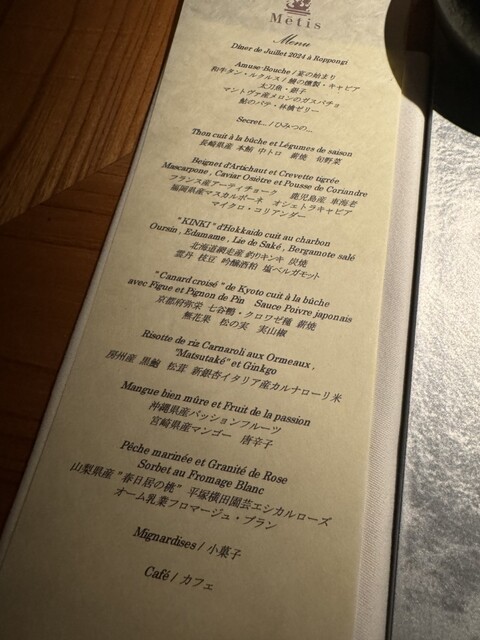 Mētis
Menu
Dîner de Juillet 2024 à Roppongi
Amuse-Bouche / 宴の始まり
和牛タン・ルクルス / 鰻の燻製・キャビア
太刀魚・銀子
マントヴァ産メロンのガスパチョ
鮎のパテ・林檎ゼリー
Secret... / ひみつの...
Thon cuit à la bûche et Légumes de saison
長崎県産 本鮪 中トロ 薪焼 旬野菜
Beignet d'Artichaut et Crevette tigrée
Mascarpone , Caviar Osiètre et Pousse de Coriandre
フランス産アーティチョーク 鹿児島産 車海老
福岡県産マスカルポーネ オシェトラキャビア
マイクロ・コリアンダー
"KINKI" d'Hokkaido cuit au charbon
Oursin , Edamame , Lie de Saké , Bergamote salé
北海道網走産 釣りキンキ 炭焼
雲丹 枝豆 吟醸酒粕 塩ベルガモット
"Canard croisé" de Kyoto cuit à la bûche
avec Figue et Pignon de Pin Sauce Poivre japonais
京都府弥栄 七谷鴨・クロワゼ種 薪焼
無花果 松の実 実山椒
Risotte de riz Carnaroli aux Ormeaux ,
"Matsutaké" et Ginkgo
房州産 黒鮑 松茸 新銀杏 イタリア産カルナローリ米
Mangue bien mûre et Fruit de la passion
沖縄県産パッションフルーツ
宮崎県産マンゴー 唐辛子
Pêche marinée et Granité de Rose
Sorbet au Fromage Blanc
山梨県産 "春日居の桃" 平塚横田園芸エシカルローズ
オーム乳業フロマージュ・ブラン
Mignardises / 小菓子
Café / カフェ